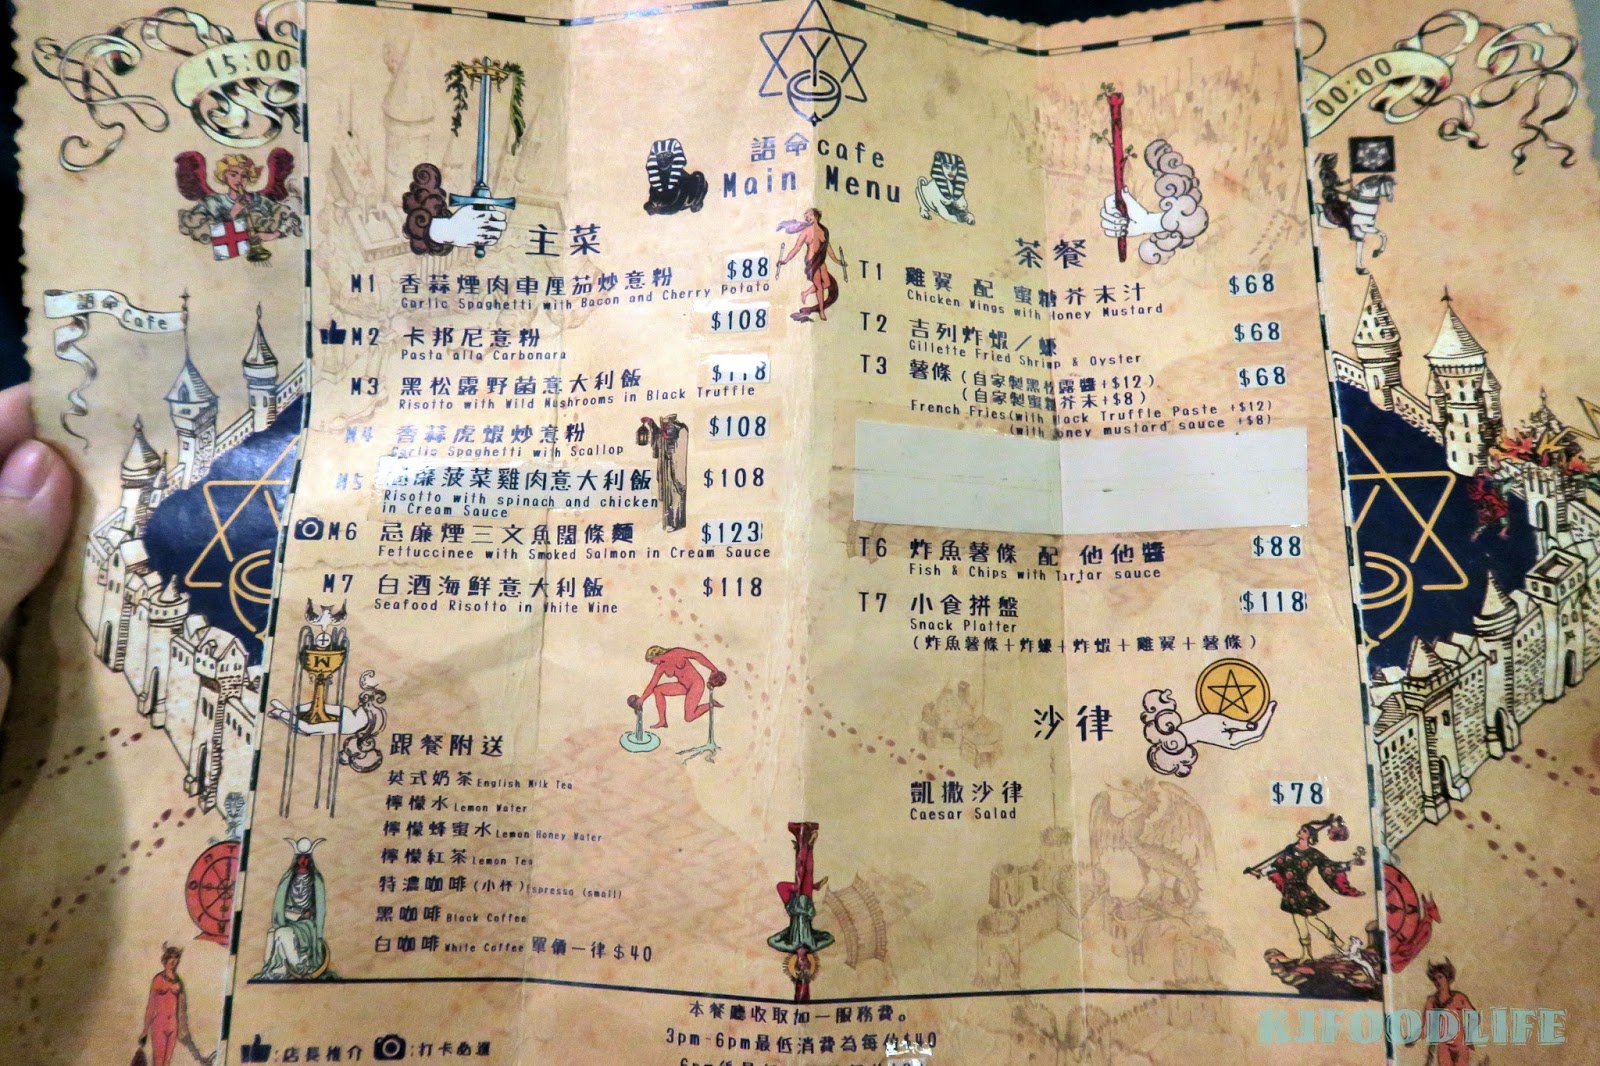 15:00
00:00
語命cafe
Main Menu
語命 Cafe
主菜
M1 香蒜煙肉車厘茄炒意粉 $88
Garlic Spaghetti with Bacon and Cherry Potato
M2 卡邦尼意粉 $108
Pasta alla Carbonara
M3 黑松露野菌意大利飯 $118
Risotto with Wild Mushrooms in Black Truffle
M4 香蒜虎蝦炒意粉 $108
Garlic Spaghetti with Scallop
M5 忌廉菠菜雞肉意大利飯 $108
Risotto with spinach and chicken
in Cream Sauce
M6 忌廉煙三文魚闊條麵 $123
Fettuccinee with Smoked Salmon in Cream Sauce
M7 白酒海鮮意大利飯 $118
Seafood Risotto in White Wine
跟餐附送
英式奶茶 English Milk Tea
檸檬水 Lemon Water
檸檬蜂蜜水 Lemon Honey Water
檸檬紅茶 Lemon Tea
特濃咖啡(小杯) Espresso (small)
黑咖啡 Black Coffee
白咖啡 White Coffee 單價一律$40
茶餐
T1 雞翼 配 蜜糖芥末汁 $68
Chicken Wings with Honey Mustard
T2 吉列炸蝦/蠔 $68
Gillette Fried Shrimp & Oyster
T3 薯條(自家製黑松露醬+$12) $68
(自家製蜜糖芥末+$8)
French Fries(with Black Truffle Paste +$12)
(with honey mustard sauce +$8)
T6 炸魚薯條 配 他他醬 $88
Fish & Chips with Tartar sauce
T7 小食拼盤 $118
Snack Platter
(炸魚薯條+炸蠔+炸蝦+雞翼+薯條)
沙律
凱撒沙律 $78
Caesar Salad
本餐廳收取加一服務費。
3pm-6pm最低消費為每位$40
:店長推介 :打卡必選
KJFOODLIFE